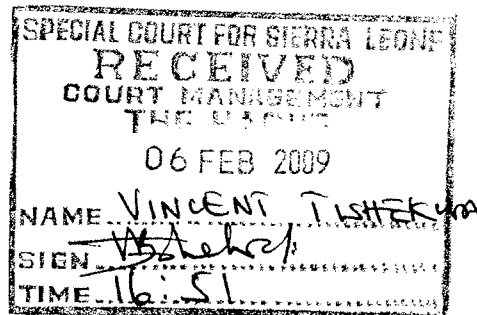 SPECIAL COURT FOR SIERRA LEONE
RECEIVED
COURT MANAGEMENT
THE HAGUE
06 FEB 2009
NAME VINCENT TISHEKWA
SIGN
TIME 16:51